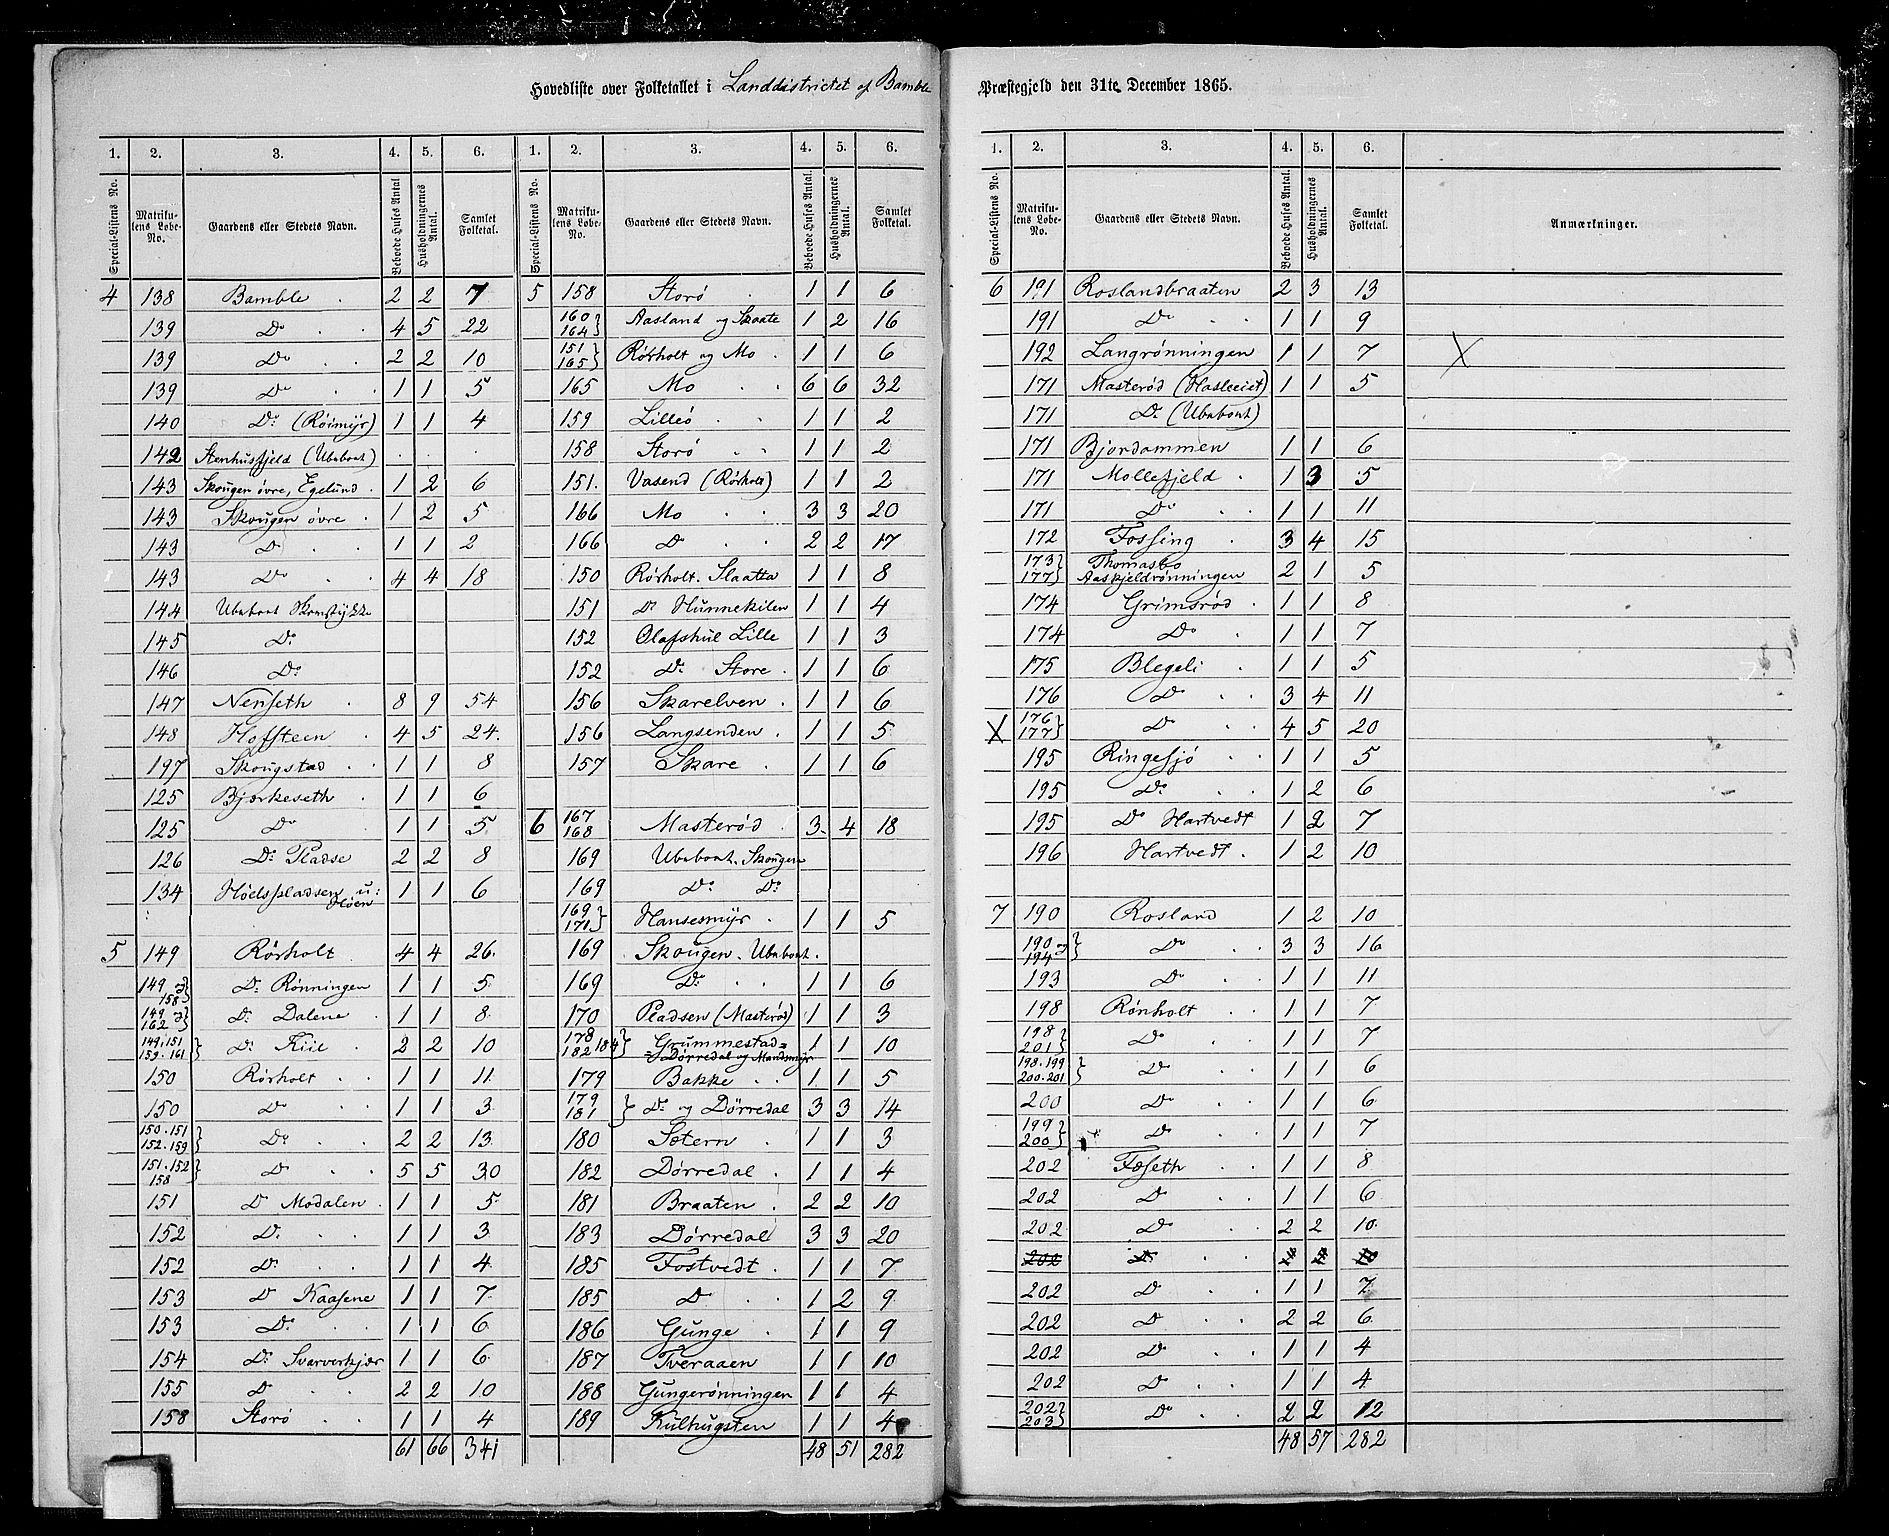 Hovedliste over Folketallet i Landdistrictet af Bamble
Præstegjeld den 31te December 1865.
1. 2. 3. 4. 5. 6. 1. 2. 3. 4. 5. 6.
Special-Listens No. Matrikulens Løbe-No. Gaardens eller Stedets Navn. Beboede Huses Antal Husholdningernes Antal. Samlet Folketal. Special-Listens No. Matrikulens Løbe-No. Gaardens eller Stedets Navn. Beboede Huses Antal. Husholdningernes Antal. Samlet Folketal.
4 138 Bamble 2 2 7
139 Do 4 5 22
139 Do 2 2 10
139 Do 1 1 5
140 Do (Röimyr) 1 1 4
142 Stenhusfjeld (Ubeboet) . . .
143 Skougen övre, Egelund 1 2 6
143 Skougen övre 1 2 5
143 Do 1 1 2
143 Do 4 4 18
144 Ubeboet Skomstykke
145 Do
146 Do
147 Nenseth 8 9 54
148 Hofsteen 4 5 24
197 Skougstad 1 1 8
125 Bjerkeseth 1 1 6
125 Do 1 1 5
126 Do Pladse 2 2 8
134 Höelspladsen u: Höen 1 1 6
5 149 Rörholt 4 4 26
149 og 158 } Do Rönningen 1 1 5
149 og 162 } Do Dalene 1 1 8
149.151 159.161 } Do Kiil 2 2 10
150 Rörholt 1 1 11
150 Do 1 1 3
150.151 152.159 } Do 2 2 13
151.152 158 } Do 5 5 30
151 Do Modalen 1 1 5
152 Do 1 1 3
152 Do 1 1 4
153 Do Kaasene 1 1 7
153 Do 1 1 6
154 Do Svarverkjær 1 1 6
155 Do 2 2 10
158 Storö 1 1 4
61 66 341
5 158 Storö 1 1 6
160 164 } Aasland og Skaate 1 2 16
151 165 } Rörholt og Mo 1 1 6
165 Mo 6 6 32
159 Lilleö 1 1 2
158 Storö 1 1 2
151. Vasend (Rörholt) 1 1 2
166 Mo 3 3 20
166 Do 2 2 17
150 Rörholt. Slaatta 1 1 8
151 Do Hunnekilen 1 1 4
152 Olafshul Lille 1 1 3
152 Do Store 1 1 6
156 Skarelven 1 1 6
156 Langsenden 1 1 5
157 Skare 1 1 6
6 167 168 Masteröd 3 4 18
169 Ubeboet. Skougen
169 Do Do
169 171 } Hansesmyr 1 1 5
169 Skougen. Ubeboet.
169 Do 1 1 6
170 Pladsen (Masteröd) 1 1 3
178 182 184 } Grummestad= =Dörredal og Mandsmyr 1 1 10
179 Bakke 1 1 5
179 181 } Do og Dörredal 3 3 14
180 Sætern 1 1 3
182 Dörredal 1 1 4
181 Braaten 2 2 10
183 Dörredal 3 3 20
185 Fostvedt 1 1 7
185 Do 1 2 9
186 Gunge 1 1 9
187 Tveraaen 1 1 10
188 Gungerönningen 1 1 4
189 Kulhugsten 1 1 4
48 51 282
1. 2. 3. 4. 5. 6.
Special-Listens No. Matrikulens Løbe-No. Gaardens eller Stedets Navn. Beboede Huses Antal. Husholdningernes Antal. Samlet Folketal. Anmærkninger.
6 191 Roslandbraaten 2 3 13
191 Do 1 1 9
192 Langrönningen 1 1 7 X
171 Masteröd (Hasleeist) 1 1 5
171 Do (Ubeboet)
171 Bjordammen 1 1 6
171 Mollefjeld 1 3 5
171 Do 1 1 11
172 Fossing 3 4 15
173 177 } Thomasbo Aaskjeldrönningen 2 1 5
174 Grimsröd 1 1 8
174 Do 1 1 7
175 Blegeli 1 1 5
176 Do 3 4 11
X 176 177 } Do 4 5 20
195 Ringesjö 1 1 5
195 Do 1 2 6
195 Do Hartvedt 1 2 7
196 Hartvedt 1 2 10
7 190 Rosland 1 2 10
190 og 194 } Do 3 3 16
193 Do 1 1 11
198 Rönholt 1 1 7
198 201 } Do 1 1 7
198.199 200.201 } Do 1 1 6
200 Do 1 1 6
199 200 } Do 1 1 7
202 Fæseth 1 1 8
202 Do 1 1 6
202 Do 2 2 10
202 Do 2 2 10
202 Do 1 1 7
202 Do 2 2 6
202 Do 1 1 4
202 Do 1 1 4
202 203 } Do 2 2 12
48 57 282